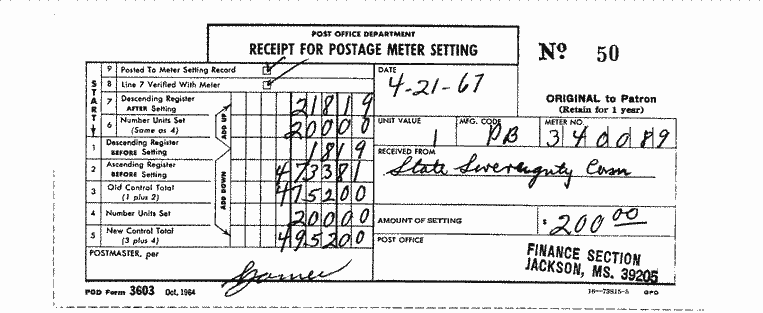 POST OFFICE DEPARTMENT
RECEIPT FOR POSTAGE METER SETTING
Nº 50
ORIGINAL to Patron
(Retain for 1 year)
START
9 Posted To Meter Setting Record
8 Line 7 Verified With Meter
7 Descending Register AFTER Setting 21819
6 Number Units Set (Same as 4) 20000
ADD UP
1 Descending Register BEFORE Setting 1819
2 Ascending Register BEFORE Setting 473381
3 Old Control Total (1 plus 2) 475200
ADD DOWN
4 Number Units Set 20000
5 New Control Total (3 plus 4) 495200
POSTMASTER, per
DATE
4-21-67
UNIT VALUE 1
MFG. CODE PB
METER NO. 340089
RECEIVED FROM
State Sovereignty Com
AMOUNT OF SETTING $ 200.00
POST OFFICE
FINANCE SECTION
JACKSON, MS. 39205
POD Form 3603 Oct. 1964
16—73815-8 GPO